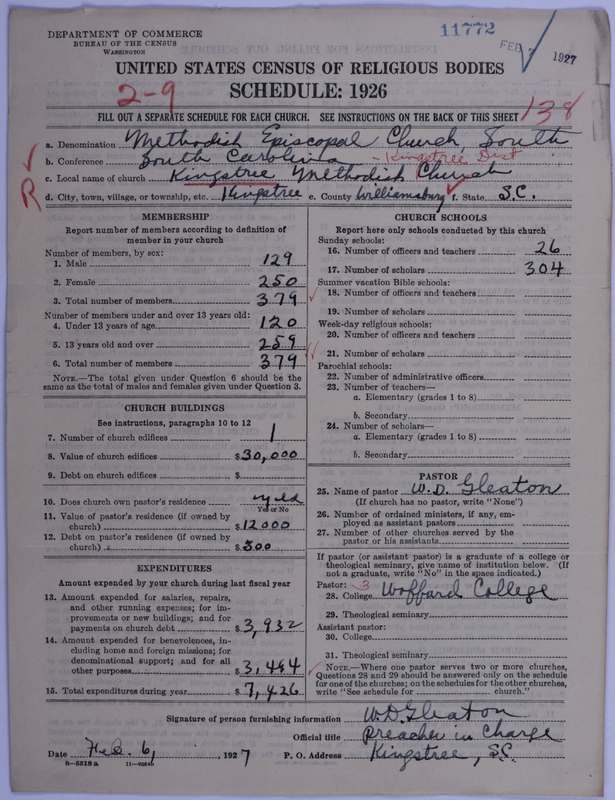 DEPARTMENT OF COMMERCE
BUREAU OF THE CENSUS
WASHINGTON
11772
FEB 7 1927
UNITED STATES CENSUS OF RELIGIOUS BODIES
SCHEDULE: 1926
2-9
FILL OUT A SEPARATE SCHEDULE FOR EACH CHURCH. SEE INSTRUCTIONS ON THE BACK OF THIS SHEET
138
a. Denomination Methodist Episcopal Church, South
b. Conference South Carolina - Kingstree Dist
c. Local name of church Kingstree Methodist Church
R
d. City, town, village, or township, etc. Kingstree e. County Williamsburg f. State S.C.
MEMBERSHIP
Report number of members according to definition of member in your church
Number of members, by sex:
1. Male 129
2. Female 250
3. Total number of members 379
Number of members under and over 13 years old:
4. Under 13 years of age 120
5. 13 years old and over 259
6. Total number of members 379
NOTE.—The total given under Question 6 should be the same as the total of males and females given under Question 3.
CHURCH BUILDINGS
See instructions, paragraphs 10 to 12
7. Number of church edifices 1
8. Value of church edifices $30,000
9. Debt on church edifices $
10. Does church own pastor's residence yes
Yes or No
11. Value of pastor's residence (if owned by church) $12000
12. Debt on pastor's residence (if owned by church) $500
EXPENDITURES
Amount expended by your church during last fiscal year
13. Amount expended for salaries, repairs, and other running expenses; for improvements or new buildings; and for payments on church debt $3,932
14. Amount expended for benevolences, including home and foreign missions; for denominational support; and for all other purposes $3,494
15. Total expenditures during year $7,426
CHURCH SCHOOLS
Report here only schools conducted by this church
Sunday schools:
16. Number of officers and teachers 26
17. Number of scholars 304
Summer vacation Bible schools:
18. Number of officers and teachers
19. Number of scholars
Week-day religious schools:
20. Number of officers and teachers
21. Number of scholars
Parochial schools:
22. Number of administrative officers
23. Number of teachers—
a. Elementary (grades 1 to 8)
b. Secondary
24. Number of scholars—
a. Elementary (grades 1 to 8)
b. Secondary
PASTOR
25. Name of pastor W.D. Gleaton
(If church has no pastor, write "None")
26. Number of ordained ministers, if any, employed as assistant pastors
27. Number of other churches served by the pastor or his assistants
If pastor (or assistant pastor) is a graduate of a college or theological seminary, give name of institution below. (If not a graduate, write "No" in the space indicated.)
Pastor: 3
28. College Woffard College
29. Theological seminary
Assistant pastor:
30. College
31. Theological seminary
NOTE.—Where one pastor serves two or more churches, Questions 28 and 29 should be answered only on the schedule for one of the churches; on the schedules for the other churches, write "See schedule for church."
Signature of person furnishing information W.D. Gleaton
Official title Preacher in Charge
Date Feb. 6, 1927 P. O. Address Kingstree, S.C.
8-5518 a